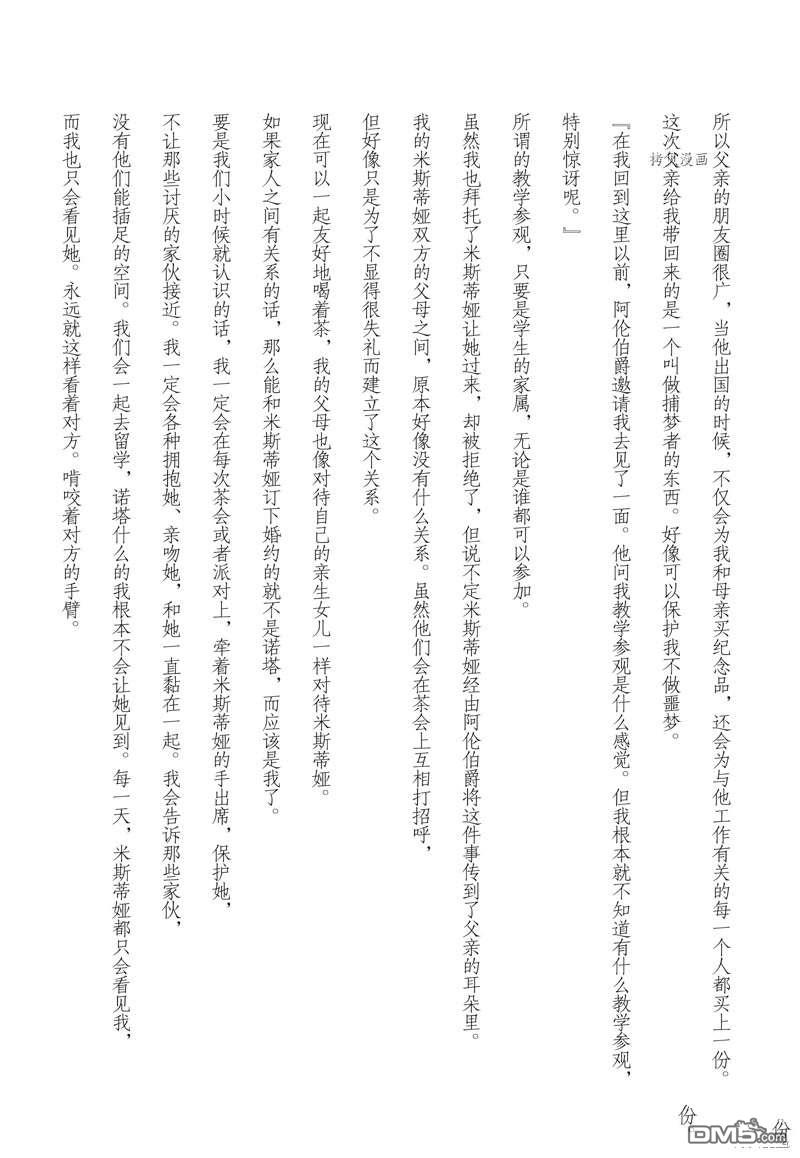 所以父亲的朋友圈很广，当他出国的时候，不仅会为我和母亲买纪念品，还会为与他工作有关的每一个人都买上一份。
这次父亲给我带回来的是一个叫做捕梦者的东西。好像可以保护我不做噩梦。
『在我回到这里以前，阿伦伯爵邀请我去见了一面。他问我教学参观是什么感觉。但我根本就不知道有什么教学参观，
特别惊讶呢。』
所谓的教学参观，只要是学生的家属，无论是谁都可以参加。
虽然我也拜托了米斯蒂娅让她过来，却被拒绝了，但说不定米斯蒂娅经由阿伦伯爵将这件事传到了父亲的耳朵里。
我的米斯蒂娅双方的父母之间，原本好像没有什么关系。虽然他们会在茶会上互相打招呼，
但好像只是为了不显得很失礼而建立了这个关系。
现在可以一起友好地喝着茶，我的父母也像对待自己的亲生女儿一样对待米斯蒂娅。
如果家人之间有关系的话，那么能和米斯蒂娅订下婚约的就不是诺塔，而应该是我了。
要是我们小时候就认识的话，我一定会在每次茶会或者派对上，牵着米斯蒂娅的手出席，保护她，
不让那些讨厌的家伙接近。我一定会各种拥抱她、亲吻她，和她一直黏在一起。我会告诉那些家伙，
没有他们能插足的空间。我们会一起去留学，诺塔什么的我根本不会让她见到。每一天，米斯蒂娅都只会看见我，
而我也只会看见她。永远就这样看着对方。啃咬着对方的手臂。
拷贝漫画
份
份
DM5.com